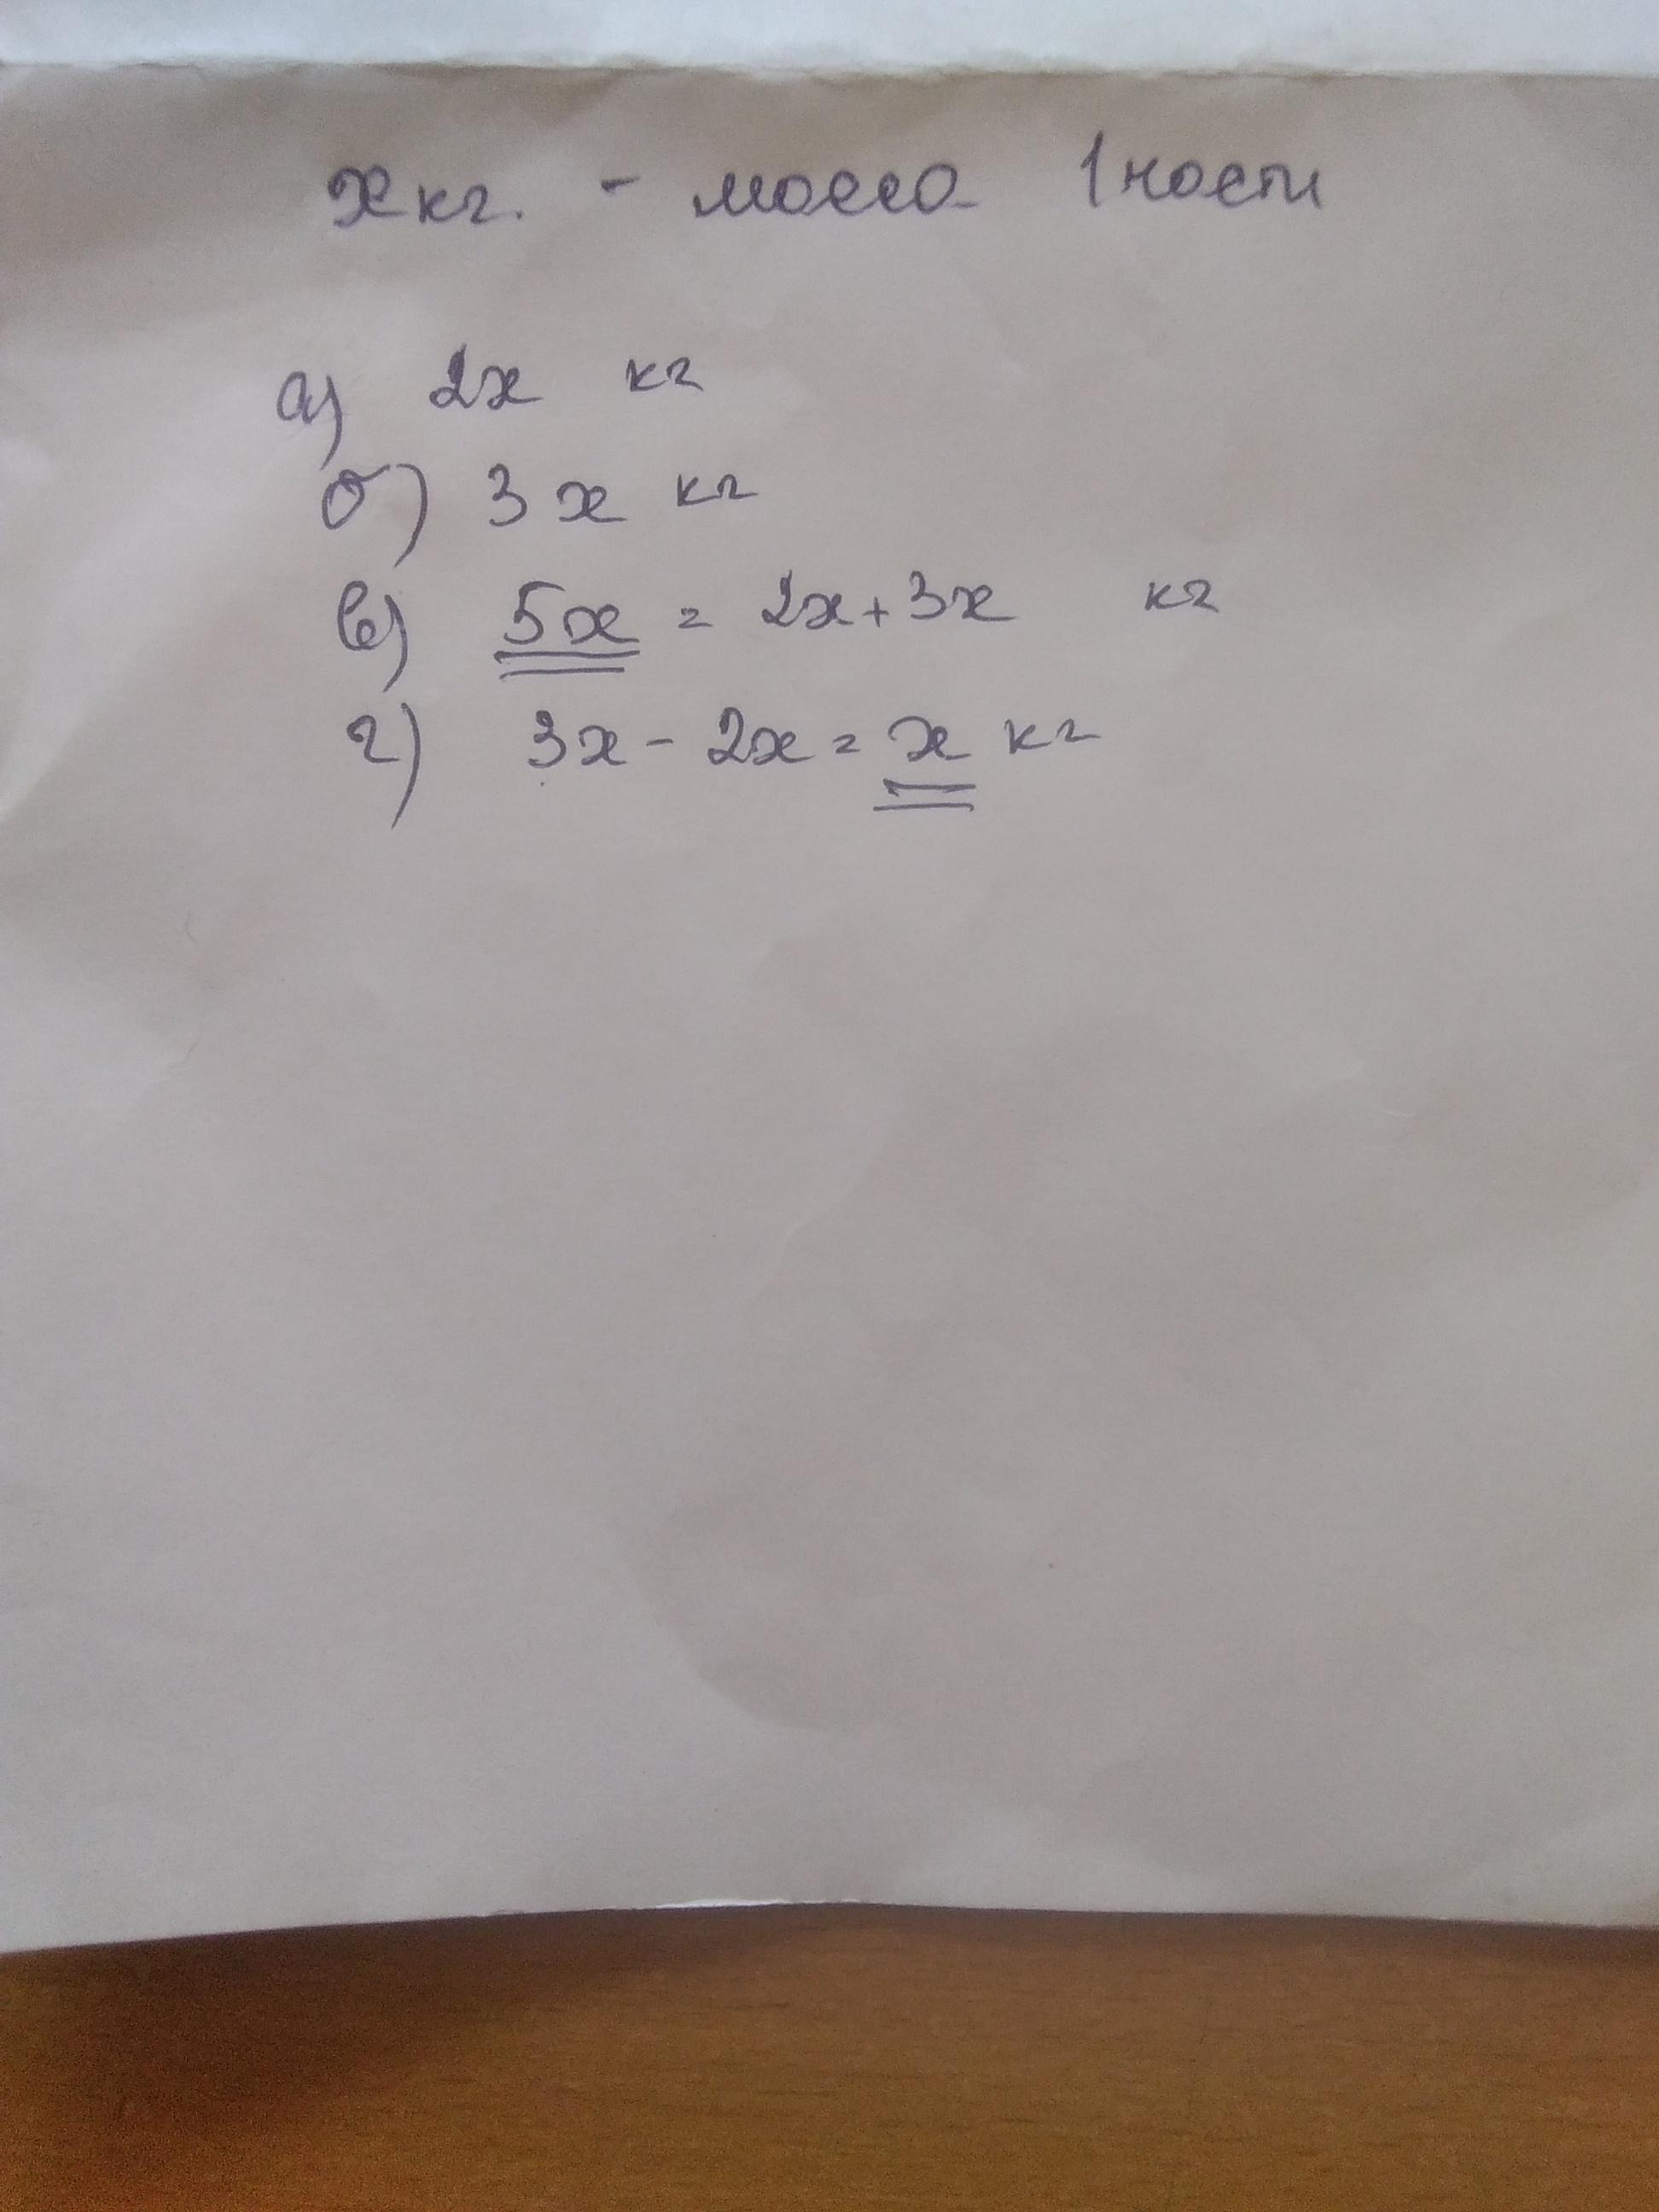 x кг. - масса 1 части
а) 2x кг
б) 3x кг
в) 5x = 2x+3x кг
г) 3x - 2x = x кг